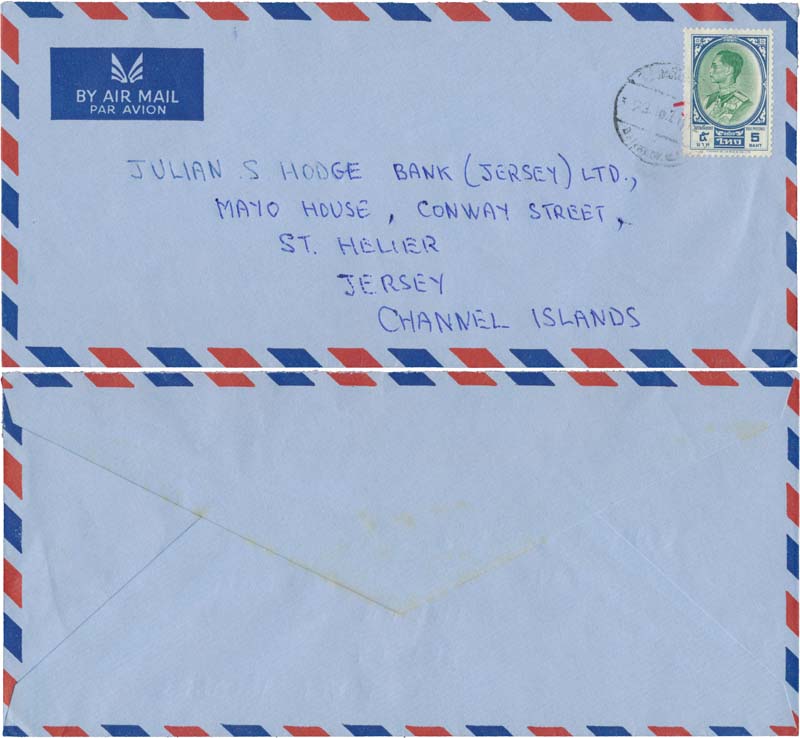 BY AIR MAIL
PAR AVION
JULIAN S HODGE BANK (JERSEY) LTD.,
MAYO HOUSE, CONWAY STREET,
ST. HELIER
JERSEY
CHANNEL ISLANDS
๕ ไทย 5
บาท BAHT